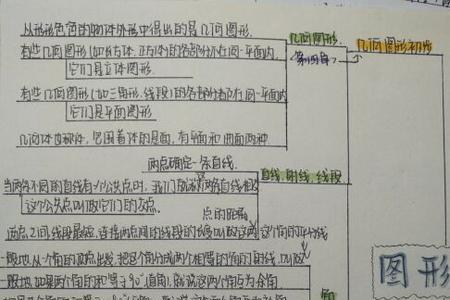 从形形色色的物体外形中得出的是几何图形.
有些几何图形(如长方体、正方体)的各部分不在同一平面内,
它们是立体图形.
几何图形
几何图形初步
(第四章)
有些几何图形(如三角形、线段)的各部分都在同一平面内
它们是平面图形
几何体也称体,包围着体的是面,有平面和曲面两种
两点确定一条直线.
直线、射线、线段
当两条不同的直线有一个公共点时,我们就称两条直线相交
这个公共点叫做它们的交点.
点的距离
两点之间线段最短,连接两点间的线段的长度叫做这两
个角的平分线
一般地从一个角的顶点出发,把这个角分成两个相等的角的射线,叫做
一般地如果两个角的和等于90°(直角),就说这两个角互为余角
角
图形